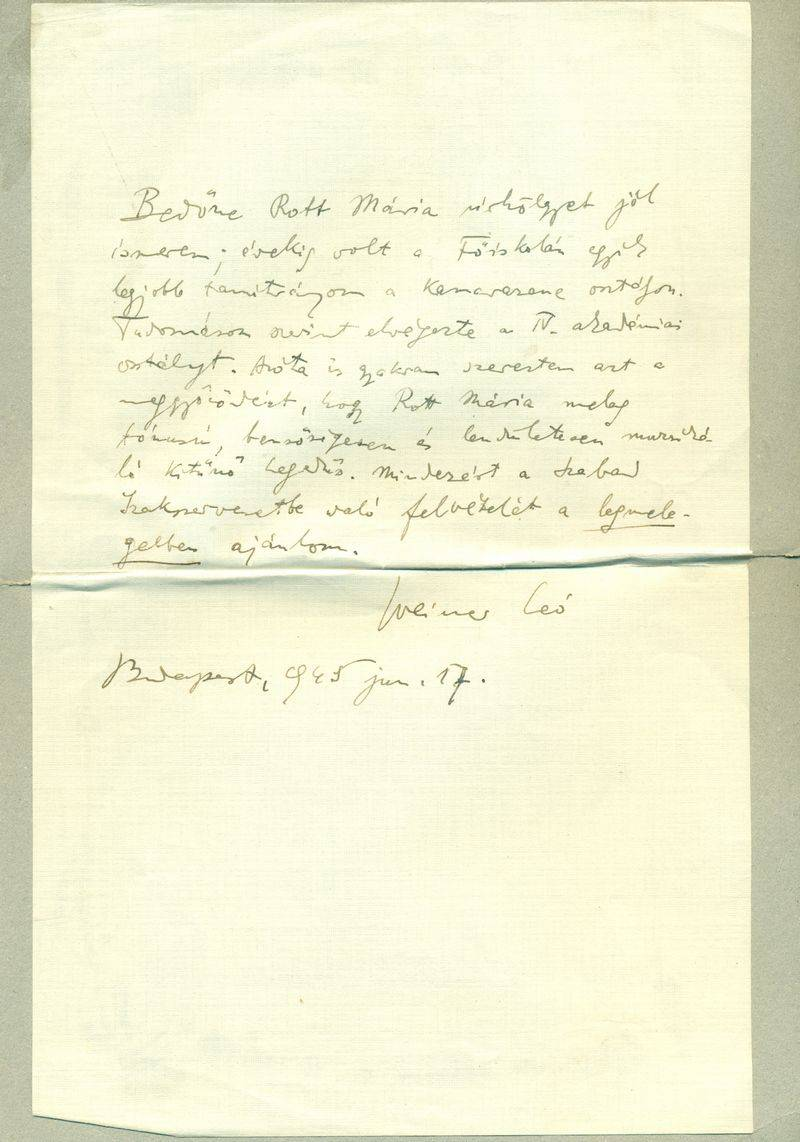 Bedőné Rott Mária úrhölgyet jól
ismerem; évekig volt a Főiskolán egyik
legjobb tanítványom a kamarazene osztályon.
Tudomásom szerint elvégezte a IV. akadémiai
osztályt. Azóta is gyakran szereztem azt a
meggyőződést, hogy Rott Mária meleg
tónusú, bensőségesen és lendületesen muzsiká-
ló kitűnő hegedűs. Mindezért a Szabad
Szakszervezetbe való felvételét a legmele-
gebben ajánlom.
Weiner Leó
Budapest, 945 jun. 17.